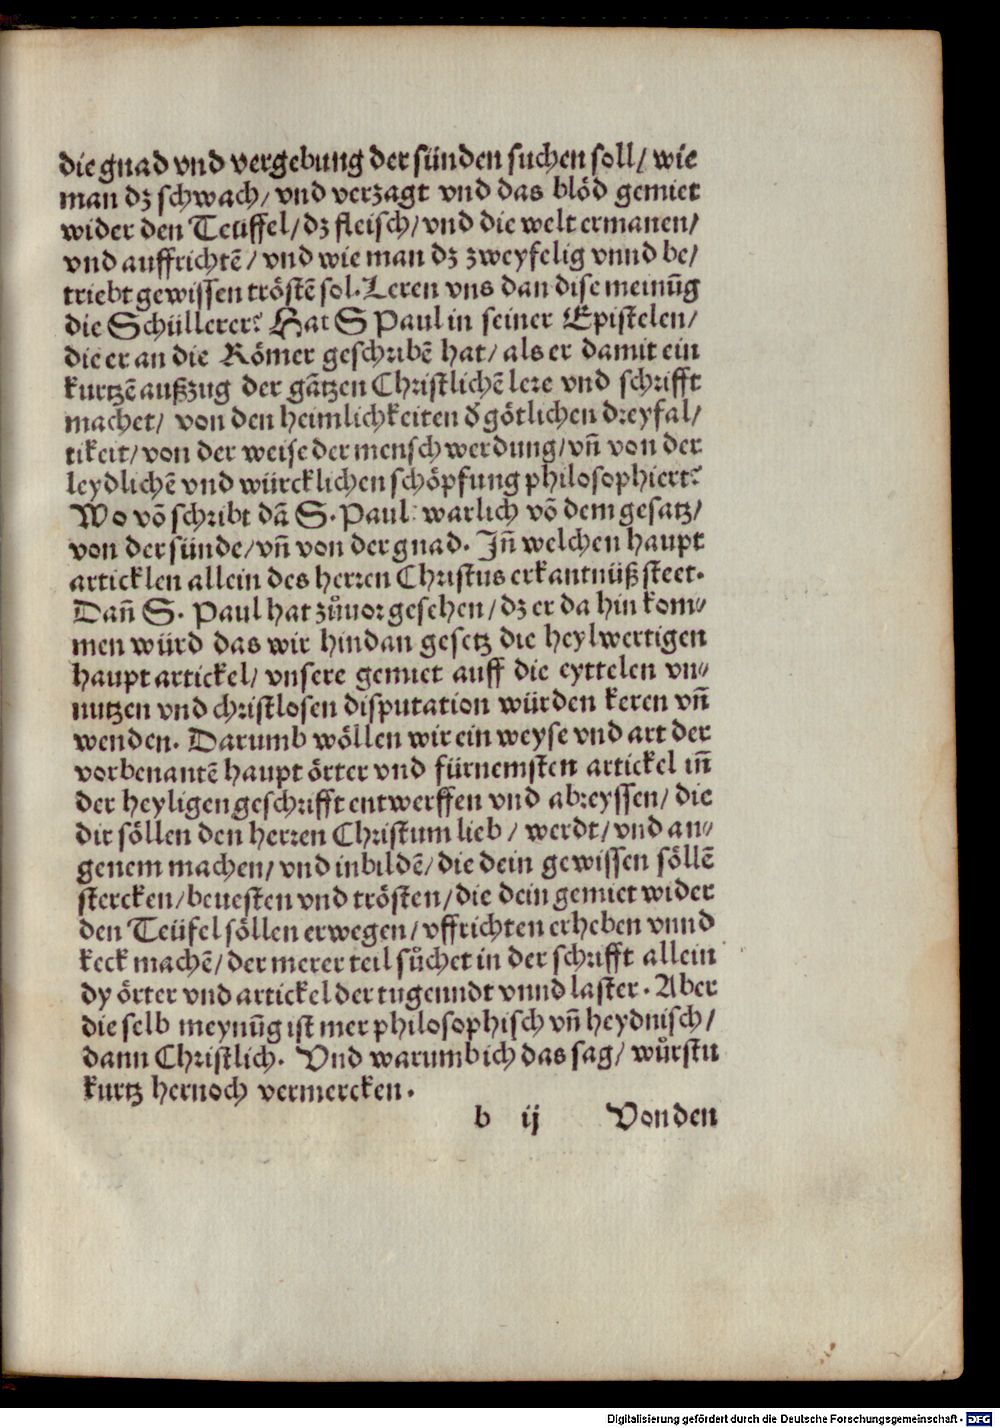 die gnad vnd vergebung der sünden suchen soll/ wie
man dz schwach/ vnd verzagt vnd das blöd gemiet
wider den Teüffel/ dz fleisch/ vnd die welt ermanen/
vnd auffrichtē/ vnd wie man dz zweyfelig vnnd be/
triebt gewissen tröstē sol. Leren vns dan dise meinūg
die Schüllerer? Hat S Paul in seiner Epistelen/
die er an die Römer geschribē hat/ als er damit ein
kurtzē außzug der gātzen Christlichē lere vnd schrifft
machet/ von den heimlichkeiten d̄ götlichen dreyfal/
tikeit/ von der weise der mensch werdung/ vñ von der
leydlichē vnd würcklichen schöpfung philosophiert?
Wo vō schribt dā S. Paul: warlich vō dem gesatz/
von der sünde/ vñ von der gnad. Jñ welchen haupt
articklen allein des herren Christus erkantnüß steet.
Dañ S. Paul hat zůuor gesehen/ dz er da hin kom⸗
men würd das wir hindan gesetz die heylwertigen
haupt artickel/ vnsere gemiet auff die eyttelen vn⸗
nutzen vnd christlosen disputation würden keren vñ
wenden. Darumb wöllen wir ein weyse vnd art der
vorbenantē haupt örter vnd fürnemsten artickel iñ
der heyligen geschrifft entwerffen vnd abreyssen/ die
dir söllen den herren Christum lieb/ werdt/ vnd an⸗
genem machen/ vnd inbildē/ die dein gewissen söllē
stercken/ beuesten vnd trösten/ die dein gemiet wider
den Teüfel söllen erwegen/ vffrichten erheben vnnd
keck machē/ der merer teil sůchet in der schrifft allein
dy örter vnd artickel der tugenndt vnnd laster. Aber
die selb meynūg ist mer philosophisch vñ heydnisch/
dann Christlich. Vnd warumb ich das sag/ wůrstu
kurtz hernoch vermercken.
b ij Von den
Digitalisierung gefördert durch die Deutsche Forschungsgemeinschaft - DFG